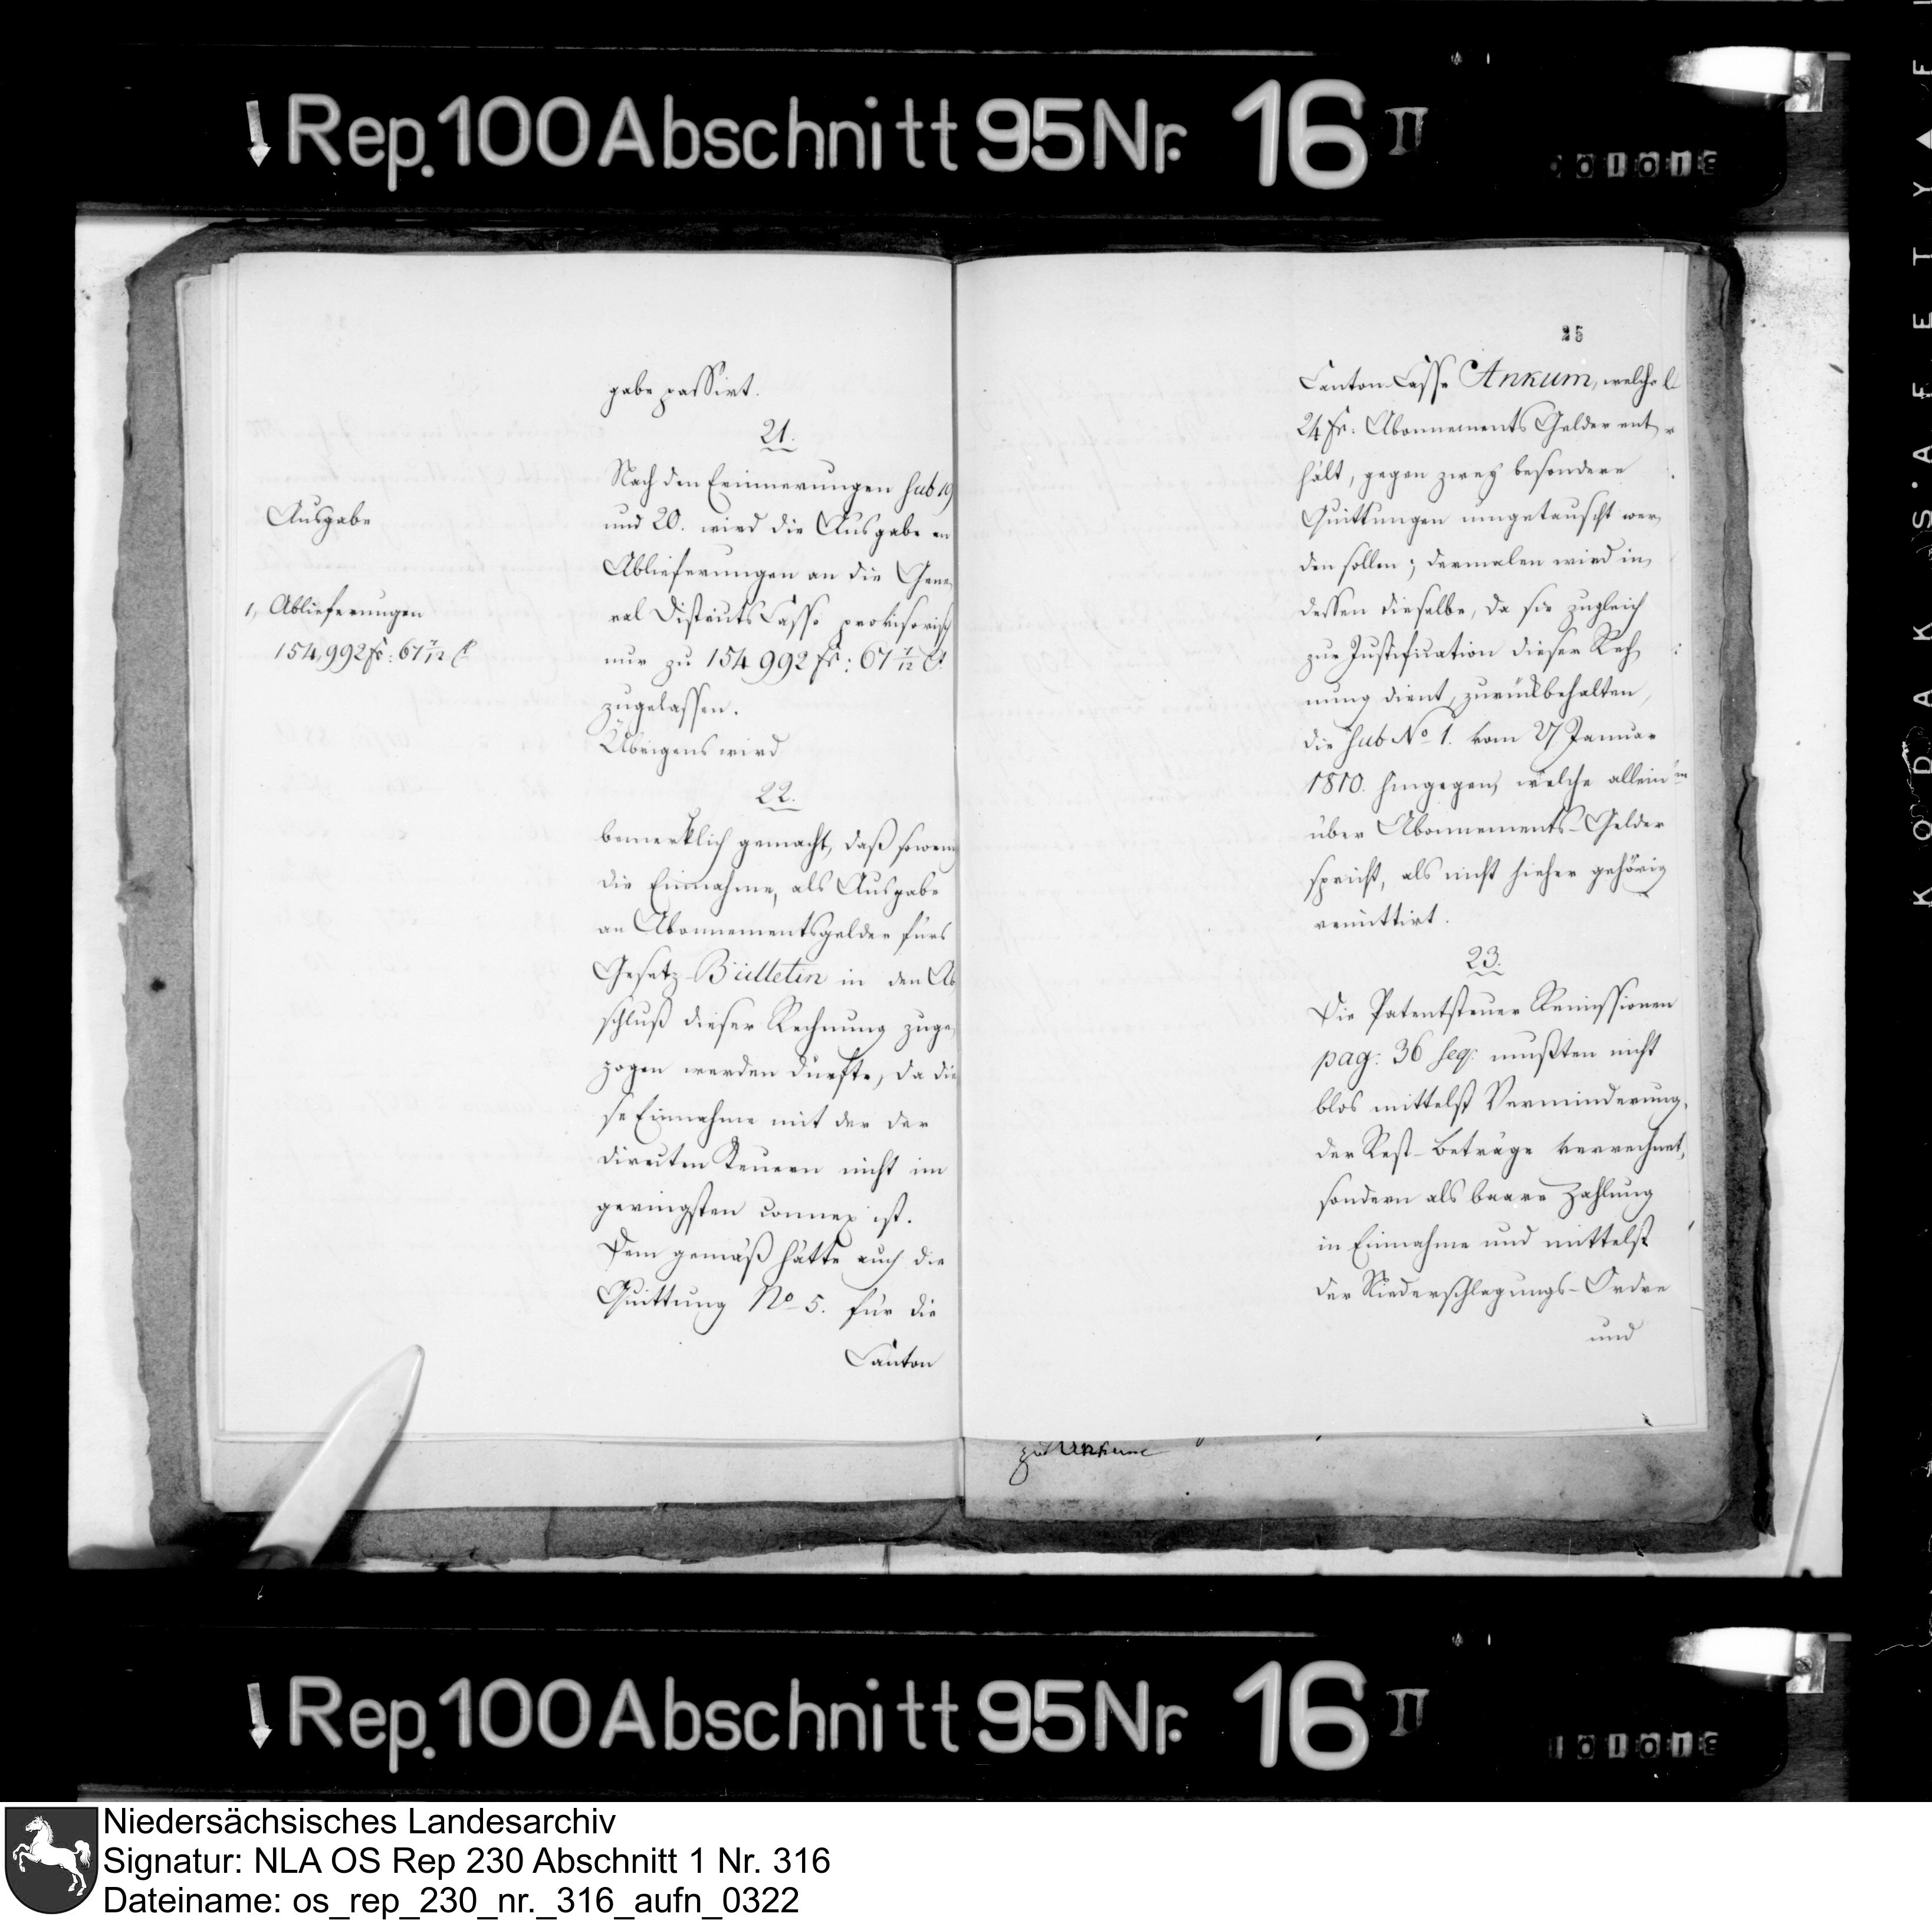 Rep. 100 Abschnitt 95 Nr. 16 II
gabe passirt.
21.
Nach den Erinnerungen sub 19
und 20. wird die Ausgabe an
Ablieferungen an die Gene,
ral Districts Casse provisorisch
nur zu 154992 fr: 67 7/12 Ct
zugelassen.
Übrigens wird
22.
bemerklich gemacht, daß sowenig
die Einnahme, als Ausgabe
an Abonnementsgelder fürs
Gesetz-Bülletin in den Ab
schluß dieser Rechnung zuge,
zogen werden durfte, da die
se Einnahme mit der der
directen Steuern nicht im
geringsten connex ist.
Dem gemäß hätte auch die
Quittung No 5. für die
Canton
Ausgabe
1, Ablieferungen
154,992 fr: 67 7/12 Ct
25
Canton-Casse Ankum, welche
24 fr: Abonnements Gelder ent
hält, gegen zwey besondere
Quittungen umgetauscht wer,
den sollen; dermalen wird in,
dessen dieselbe, da sie zugleich
zur Justification dieser Rech
nung dient, zurückbehalten,
die sub No 1. vom 27 Januar
1810. hingegen, welche allein
über Abonnements-Gelder
spricht, als nicht hieher gehörig
remittirt.
23.
Die Patentsteuer Remissionen
pag: 36 seq: mußten nicht
blos mittelst Verminderung
der Rest-Beträge verrechnet,
sondern als baare Zahlung
in Einnahme und mittelst
der Niederschlagungs-Ordre
und
Rep. 100 Abschnitt 95 Nr. 16 II
KODAK SAFETY
Niedersächsisches Landesarchiv
Signatur: NLA OS Rep 230 Abschnitt 1 Nr. 316
Dateiname: os_rep_230_nr._316_aufn_0322